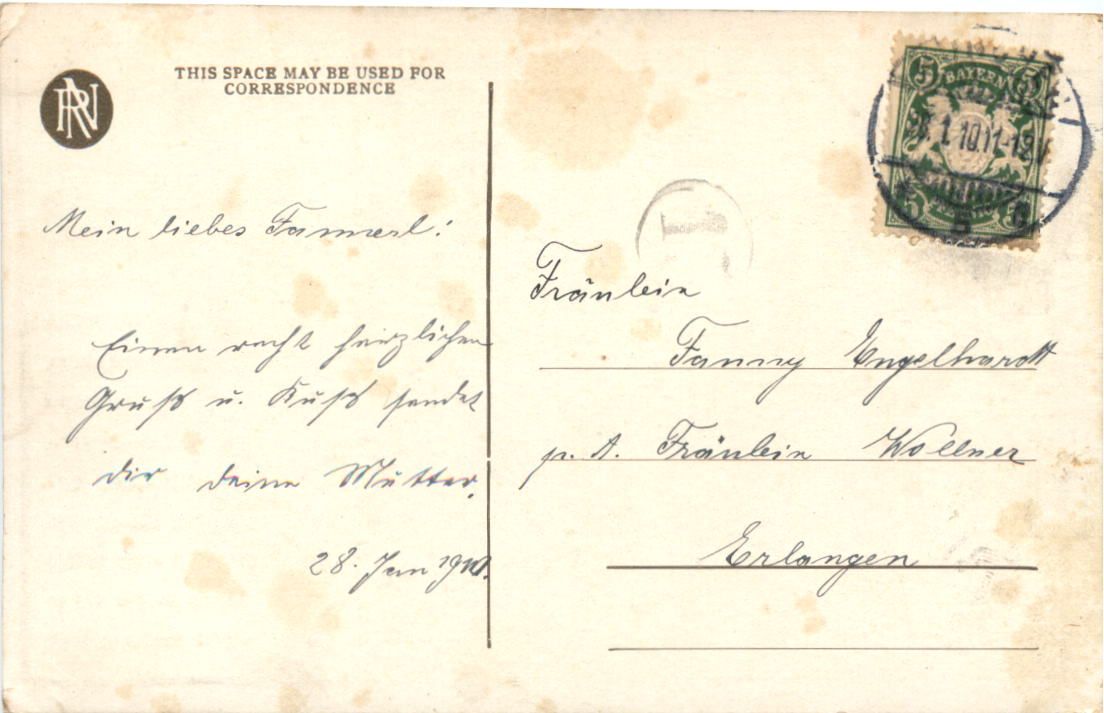 THIS SPACE MAY BE USED FOR
CORRESPONDENCE
Mein liebes Fannerl!
Einen recht herzlichen
Gruß u. Kuß sendet
dir deine Mutter.
28. Jan 1910.
5 BAYERN 5
28.1.10.11-12V
Fräulein
Fanny Engelhardt
p. A. Fräulein Wollner
Erlangen